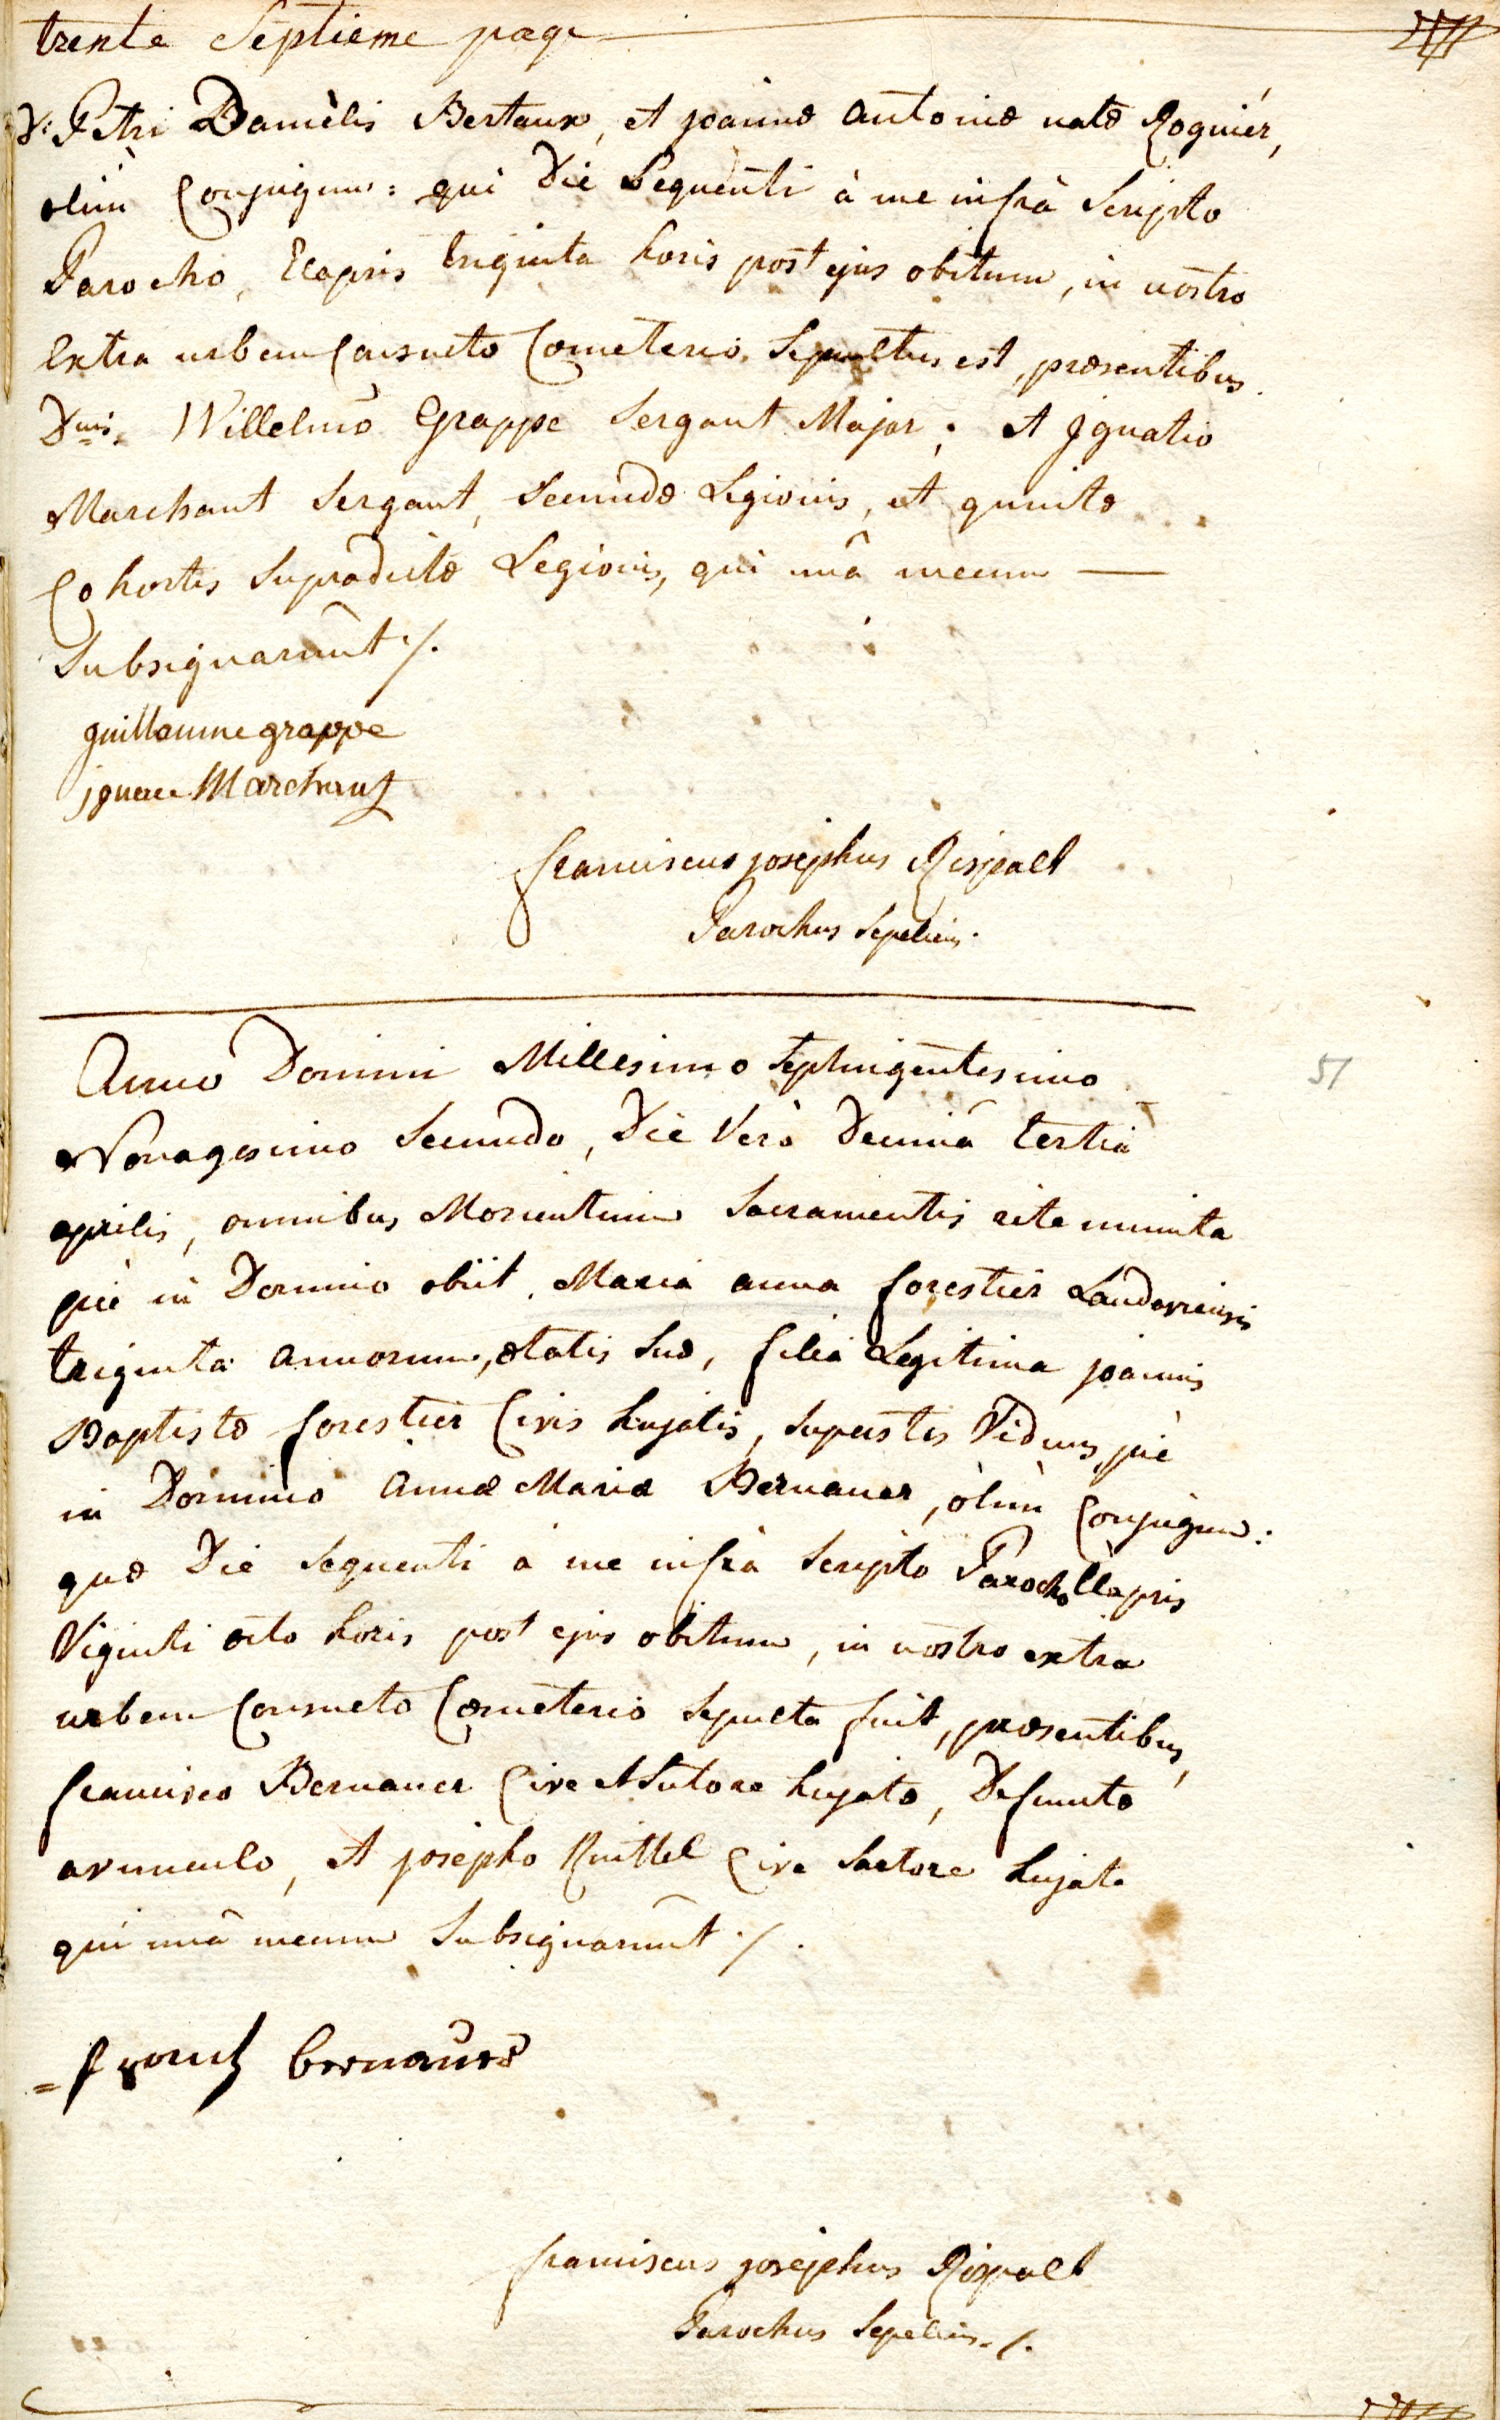 trente Septieme page
D: Petri Danièlis Bertaux, et joannæ antoniæ natæ Rognier,
olim Conjugum: qui Die Sequenti à me infrà Scripto
Parocho, Elapsis triginta horis post ejus obitum, in nostro
Extra urbem Consueto Cometerio Sepultus est, præsentibus
Dnis. Willelmo Grappe Sergant Major; et Ignatio
Marchant Sergant, Secundæ Legionis, et quintæ
Cohortis Supradictæ Legionis, qui unâ mecum —
Subsignarunt ./.
guillaume grappe
ignace Marchant
franciscus josephus Rispalt
Parochus Sepeliens.
Anno Domini Millesimo Septuigentesimo
51
Nonagesimo Secundo, Die Verò Decimâ tertiâ
aprilis, omnibus Morientium Sacramentis rite munita
piè in Domino obiit. Maria anna forestier Landaviensis
triginta annorum, ætatis Suæ, filia Legitima joannis
Baptistæ forestier Civis hujatis, Superstes Viduus, piè
in Domino annæ Mariæ Bernauer, olim Conjugum:
quæ Die Sequenti à me infrà Scripto Parocho Elapsis
Viginti octo horis post ejus obitum, in nostro extra
urbem Consueto Cæmeterio Sepulta fuit, præsentibus,
francisco Bernauer Cive et Sutore hujate, Defunctæ
avunculo, et josepho Cive Sartore hujate
qui unâ mecum Subsignarunt ./.
= frantz bernauer
franciscus josephus Rispalt
Parochus Sepeliens ./.